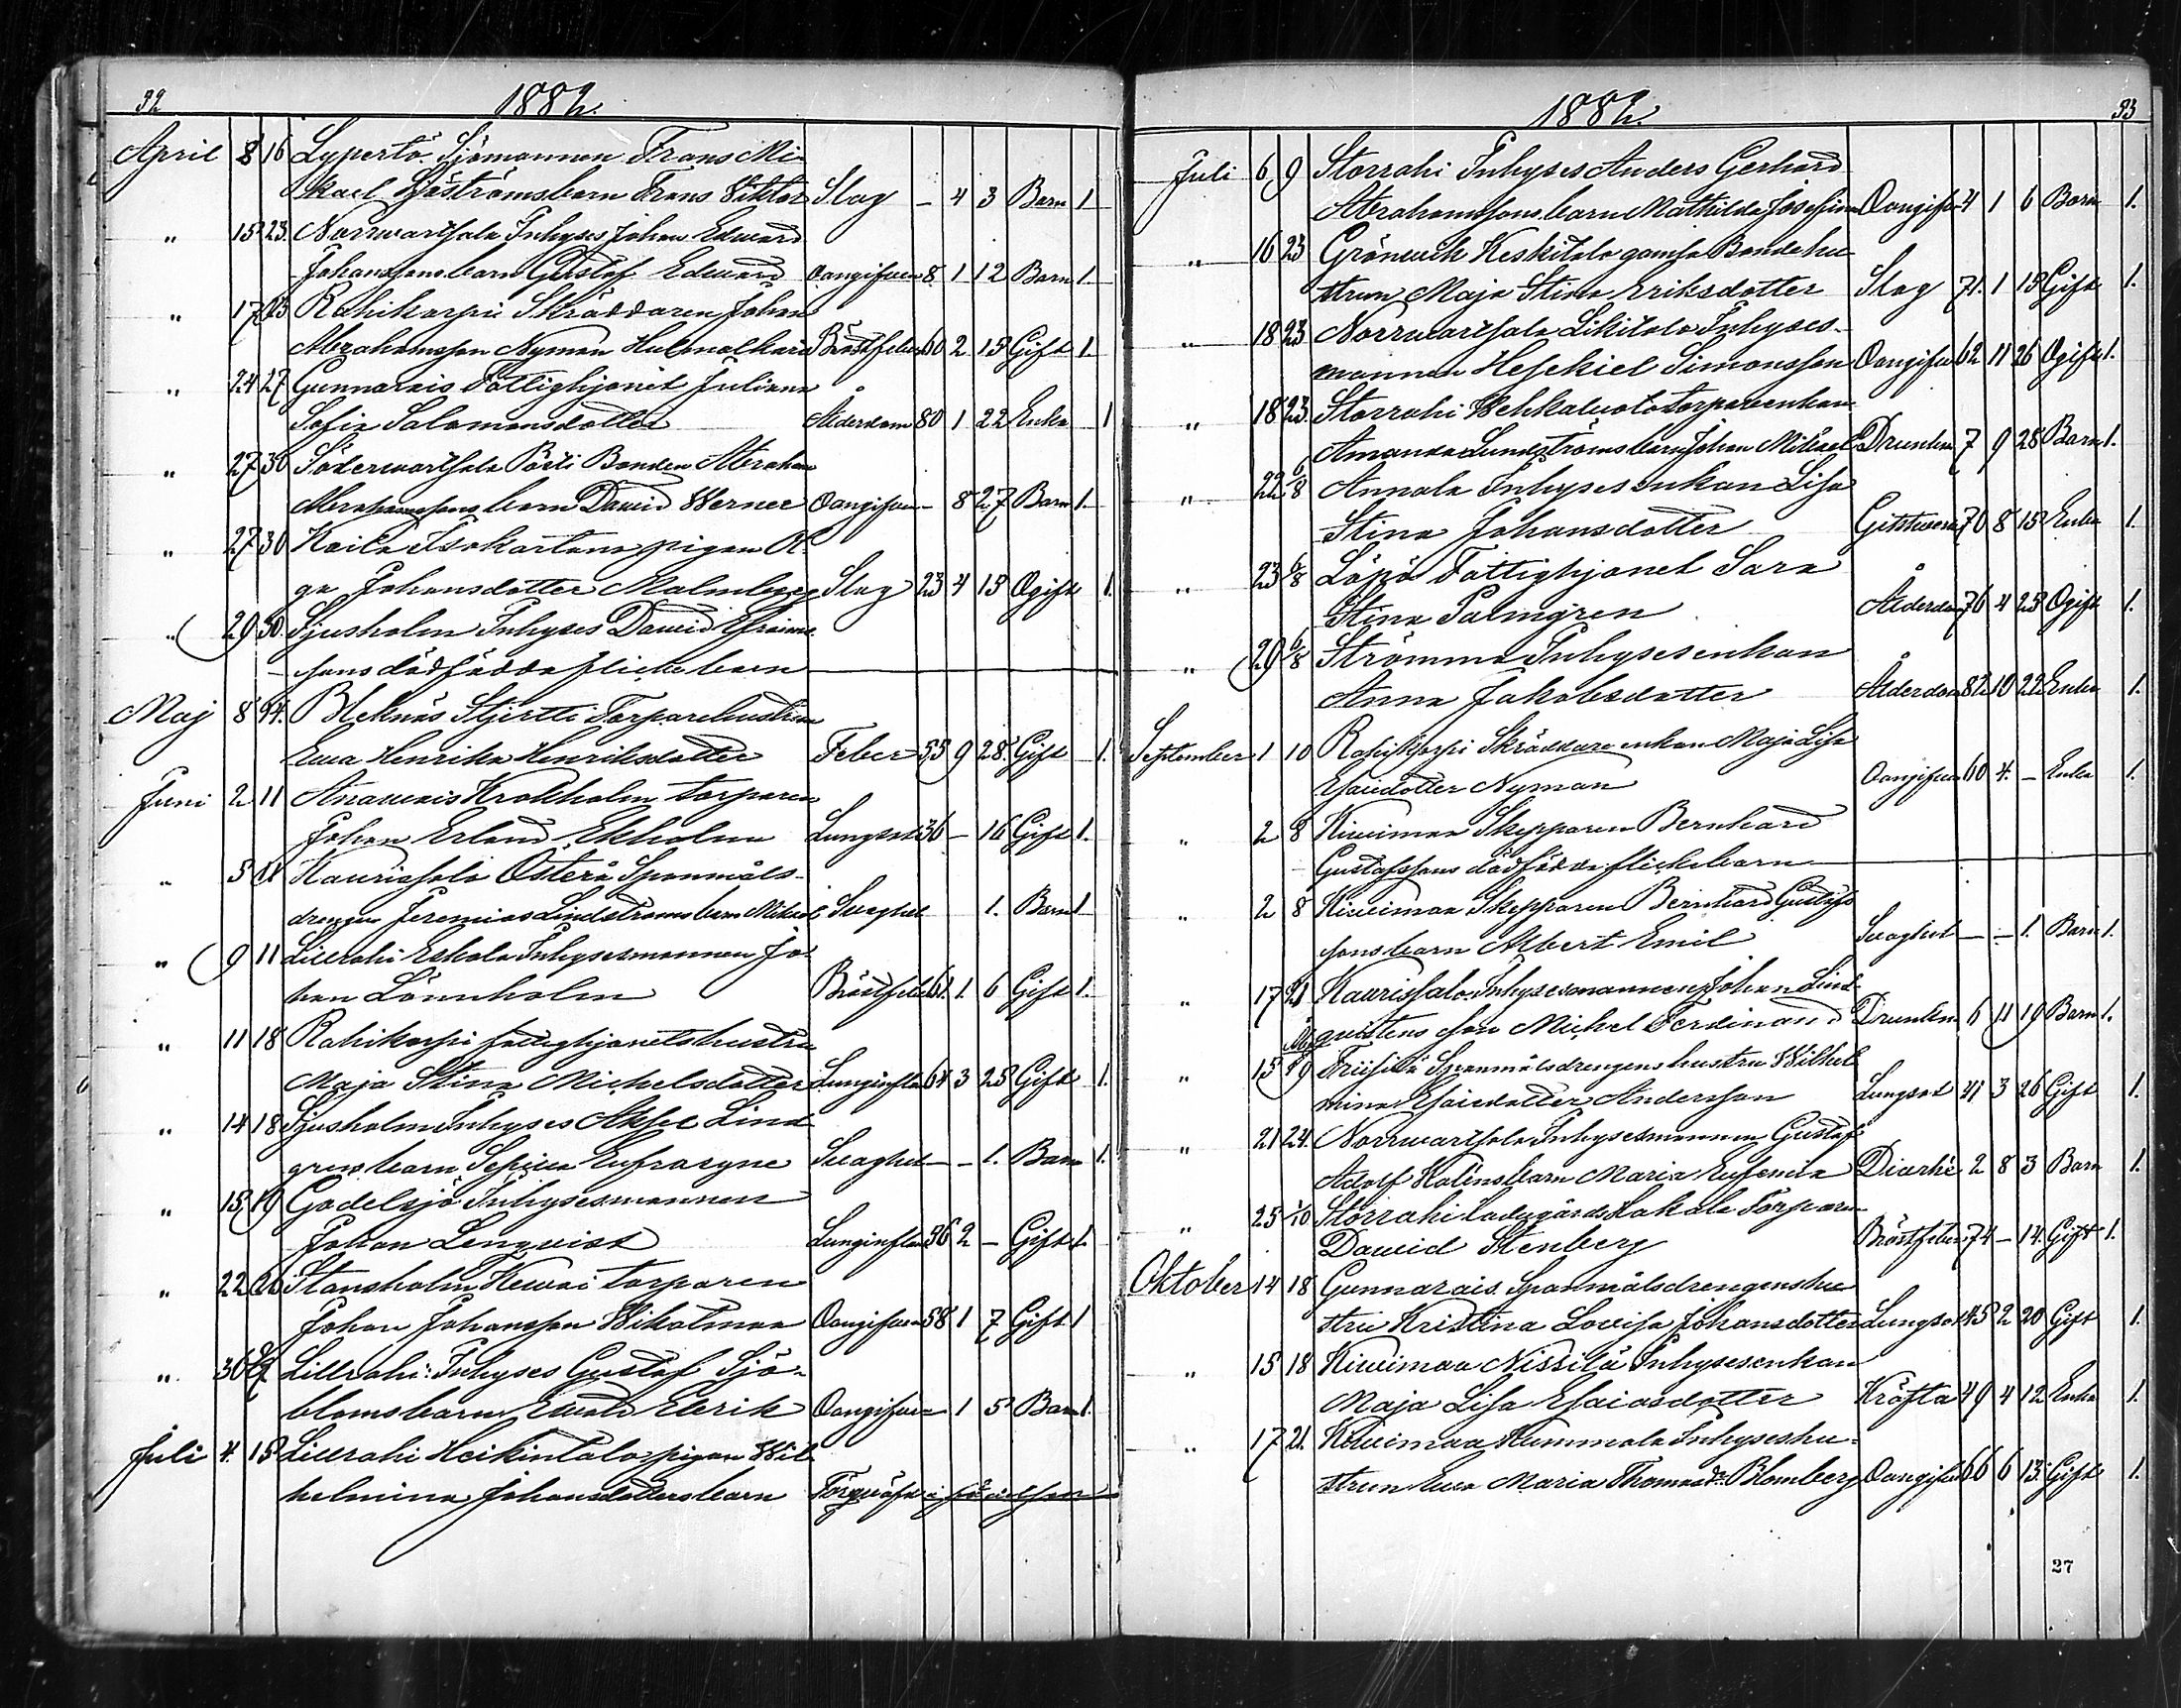 32
1882.
April 8 16 Lypertö Sjömannen Frans Mi-
kael Sjöströms barn Frans Viktor Slag - 4 3 Barn 1
" 15 23. Norrwartsala Inhyses Johan Edward
Johanssons barn Gustaf Edward Oangifwen 8 1 12 Barn 1
" 17 23 Rahikorpi Skräddaren Johan
Abrahamsson Nyman Bröstfeber 60 2 15 Gift 1
" 24 27 Gunnarais Fattighjonet Juliana
Sofia Salomonsdotter Ålderdom 80 1 22 Enka 1
" 27 30 Söderwartsala Pörti Bonden Abraham
Abrahamssons barn Dawid Werner Oangifwen - 8 27 Barn 1.
" 27 30 Koila Isokartano pigan Ol-
ga Johansdotter Malmberg Slag 23 4 15 Ogift 1.
" 29 30. Sjusholm Inhyses Dawid Efraims-
sons dödfödda flickebarn
Maj 8 14. Bleknäs Stjertti Torparehustrun
Ewa Henrika Henriksdotter Feber 55 9 28. Gift 1.
Juni 2 11 Angwiais Krokholm torparen
Johan Erland Ekholm Lungsot 36 - 16 Gift 1.
" 5 11 Kaurissalo Österå Spanmåls-
drengen Jeremias Lindströms barn Mikael Svaghet 1. Barn 1
" 9 11 Lillrahi Eskola Inhysesmannen Jo-
han Lönnholm Bröstfeber 61. 1. 6 Gift 1.
" 11 18 Rahikorpi fattighjonetshustru
Maja Stina Michelsdotter Lunginflam 64 3 25 Gift 1.
" 14 18 Sjusholm Inhyses Aksel Lind-
grens barn Eufrosyne Svaghet - - 1. Barn 1.
" 15 19 Gadelsjö Inhysesmannen
Johan Lenqvist Lunginflam 36 2 - Gift 1.
" 22 26 Stansholm Kewai torparen
Johan Johansson Wikatmaa Oangifwen 58 1 7 Gift 1
" 30 2/7 Lillrahi Inhyses Gustaf Sjö-
bloms barn Ewald Elerik Oangifwen - 1 5 Barn 1.
Juli 4. 15 Lillrahi Heikintalo pigan Wil-
helmina Johansdotters barn
1882
33
Juli 6 9 Storrahi Inhyses Anders Gerhard
Abrahamssons barn Mathilda Josefina Oangifw 4 1 6 Barn 1.
" 16 23 Grönwik Keskitalo gamla Bondehu-
strun Maja Stina Eriksdotter Slag 71. 1 15 Gift 1.
" 18 23 Norrwartsala Likitalo Inhyses-
mannen Hesekiel Simonsson Oangifw 62 11 26 Ogift 1.
" 18 23. Storrahi Wehkaluoto torpareenkan
Amanda Lundströms barn Johan Mikael Drunkn 7 9 28 Barn 1.
" 22 6/8 Annala Inhysesenkan Lisa
Stina Johansdotter 70 8 15 Enka 1.
" 23 6/8 Löpö Fattighjonet Sara
Stina Palmgren Ålderdom 76 4 23 Ogift 1.
" 29 6/8 Strömma Inhysesenkan
Anna Jakobsdotter Ålderdom 82 10 22 Enka 1.
September 1 10 Rahikorpi Skräddareenkan Maja Lisa
Esaiedotter Nyman Oangifwen 60 4. - Enka 1.
" 2 8 Kiwimaa Skepparen Bernhard
Gustafssons dödfödda flickebarn
" 2 8 Kiwimaa Skepparen Bernhard Gustafs-
sons barn Albert Emil Svaghet - - 1. Barn 1.
" 17 21 Kaurissalo Inhysesmannen Johan Lind-
qvistens son Michel Ferdinand Drunkn 6 11 19 Barn 1.
" 15 19 Friisilä Spanmålsdrengens hustru Wilhel-
mina Esaiedotter Andersson Lungsot 41 3 26 Gift 1.
" 21 24. Norrwartsala Inhysesmannen Gustaf
Adolf Kaléns barn Maria Eufemia Diarhé 2 8 3 Barn 1.
" 25 1/10 Storrahi Ladugårds Kakola Torparen
Dawid Stenberg Bröstfeber 74 - 14. Gift 1.
Oktober 14 18 Gunnarais. Spanmålsdrengenshu-
stru Kristina Lovisa Johansdotter Lungsot 45 2 20 Gift 1.
" 15 18 Kiwimaa Nissilä Inhysesenkan
Maja Lisa Esaiasdotter Kräfta 49 4 12 Enka 1.
" 17 21. Kiwimaa Kummala Inhyseshu-
strun Ewa Maria Thomasd:r Blomberg Oangifw 66 6 13 Gift 1.
27